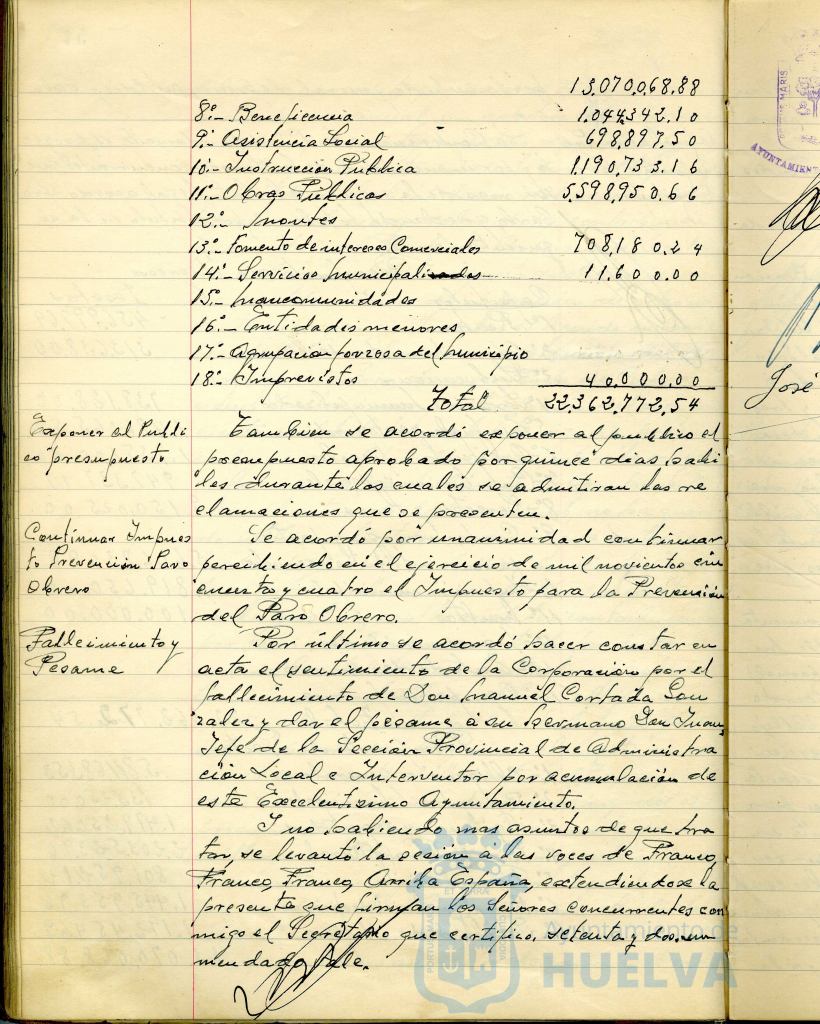 13.070.068.88
8º.- Beneficencia 1.044.342.10
9º.- Asistencia Social 698.897.50
10º.- Instrucción Publica 1.190.733.16
11º.- Obras Publicas 5.598.950.66
12º.- Montes
13º.- Fomento de intereses Comerciales 708.180.24
14º.- Servicios Municipalizados 11.600.00
15º.- Mancomunidades
16º.- Entidades menores
17º.- Agrupación forzosa del Municipio
18º.- Imprevistos 40.000.00
Total 22.362.772.54
Exponer al Publi
co presupuesto
Tambien se acordó exponer al publico el
presupuesto aprobado por quince dias habi
les durante los cuales se admitiran las re
clamaciones que se presenten.
Continuar Impues
to Prevención Paro
Obrero
Se acordó por unanimidad continuar
percibiendo en el ejercicio de mil novientos cin
cuenta y cuatro el Impuesto para la Prevención
del Paro Obrero.
Fallecimiento y
Pesame
Por último se acordó hacer constar en
acta el sentimiento de la Corporación por el
fallecimiento de Don Manuel Cortada Gon
zalez y dar el pésame á su hermano Don Juan,
Jefe de la Sección Provincial de Administra
ción Local e Interventor por acumulación de
este Excelentisimo Ayuntamiento.
Y no habiendo mas asuntos de que tra
tar, se levantó la sesión a las voces de Franco,
Franco, Franco, Arriba España, extendiendose la
presente que firman los Señores concurrentes con
migo el Secretario que certifico. setenta y dos. en
mendado Vale.
Ayuntamiento de
HUELVA
José
MARIS
AYUNTAMIENT